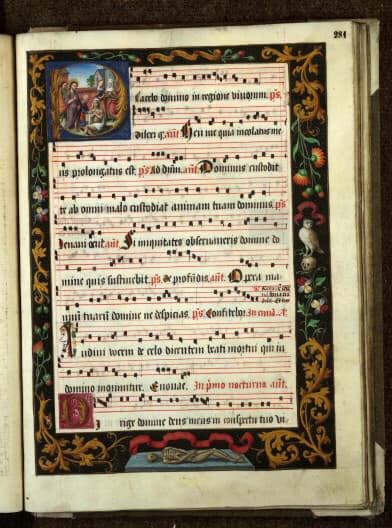 281
Placebo domino in regione vivorum. ps.
Dilexi q. añt Heu me quia incolatus me
us prolongatus est. ps ad dñm. añt. Dominus custodit
te ab omni malo custodiat animam tuam dominus. ps
Levavi ocul. añt. Si iniquitates observaveris domine do
mine quis sustinebit. ps. de profũdis. añt. Opera ma
nuum tuarũ domine ne despicias. ps. Confitebor. In evã. A
Audivi vocem de celo dicentem beati mortui qui in
domino moriuntur. Evouae. In primo nocturno añt.
Dirige domine deus meus in conspectu tuo vi